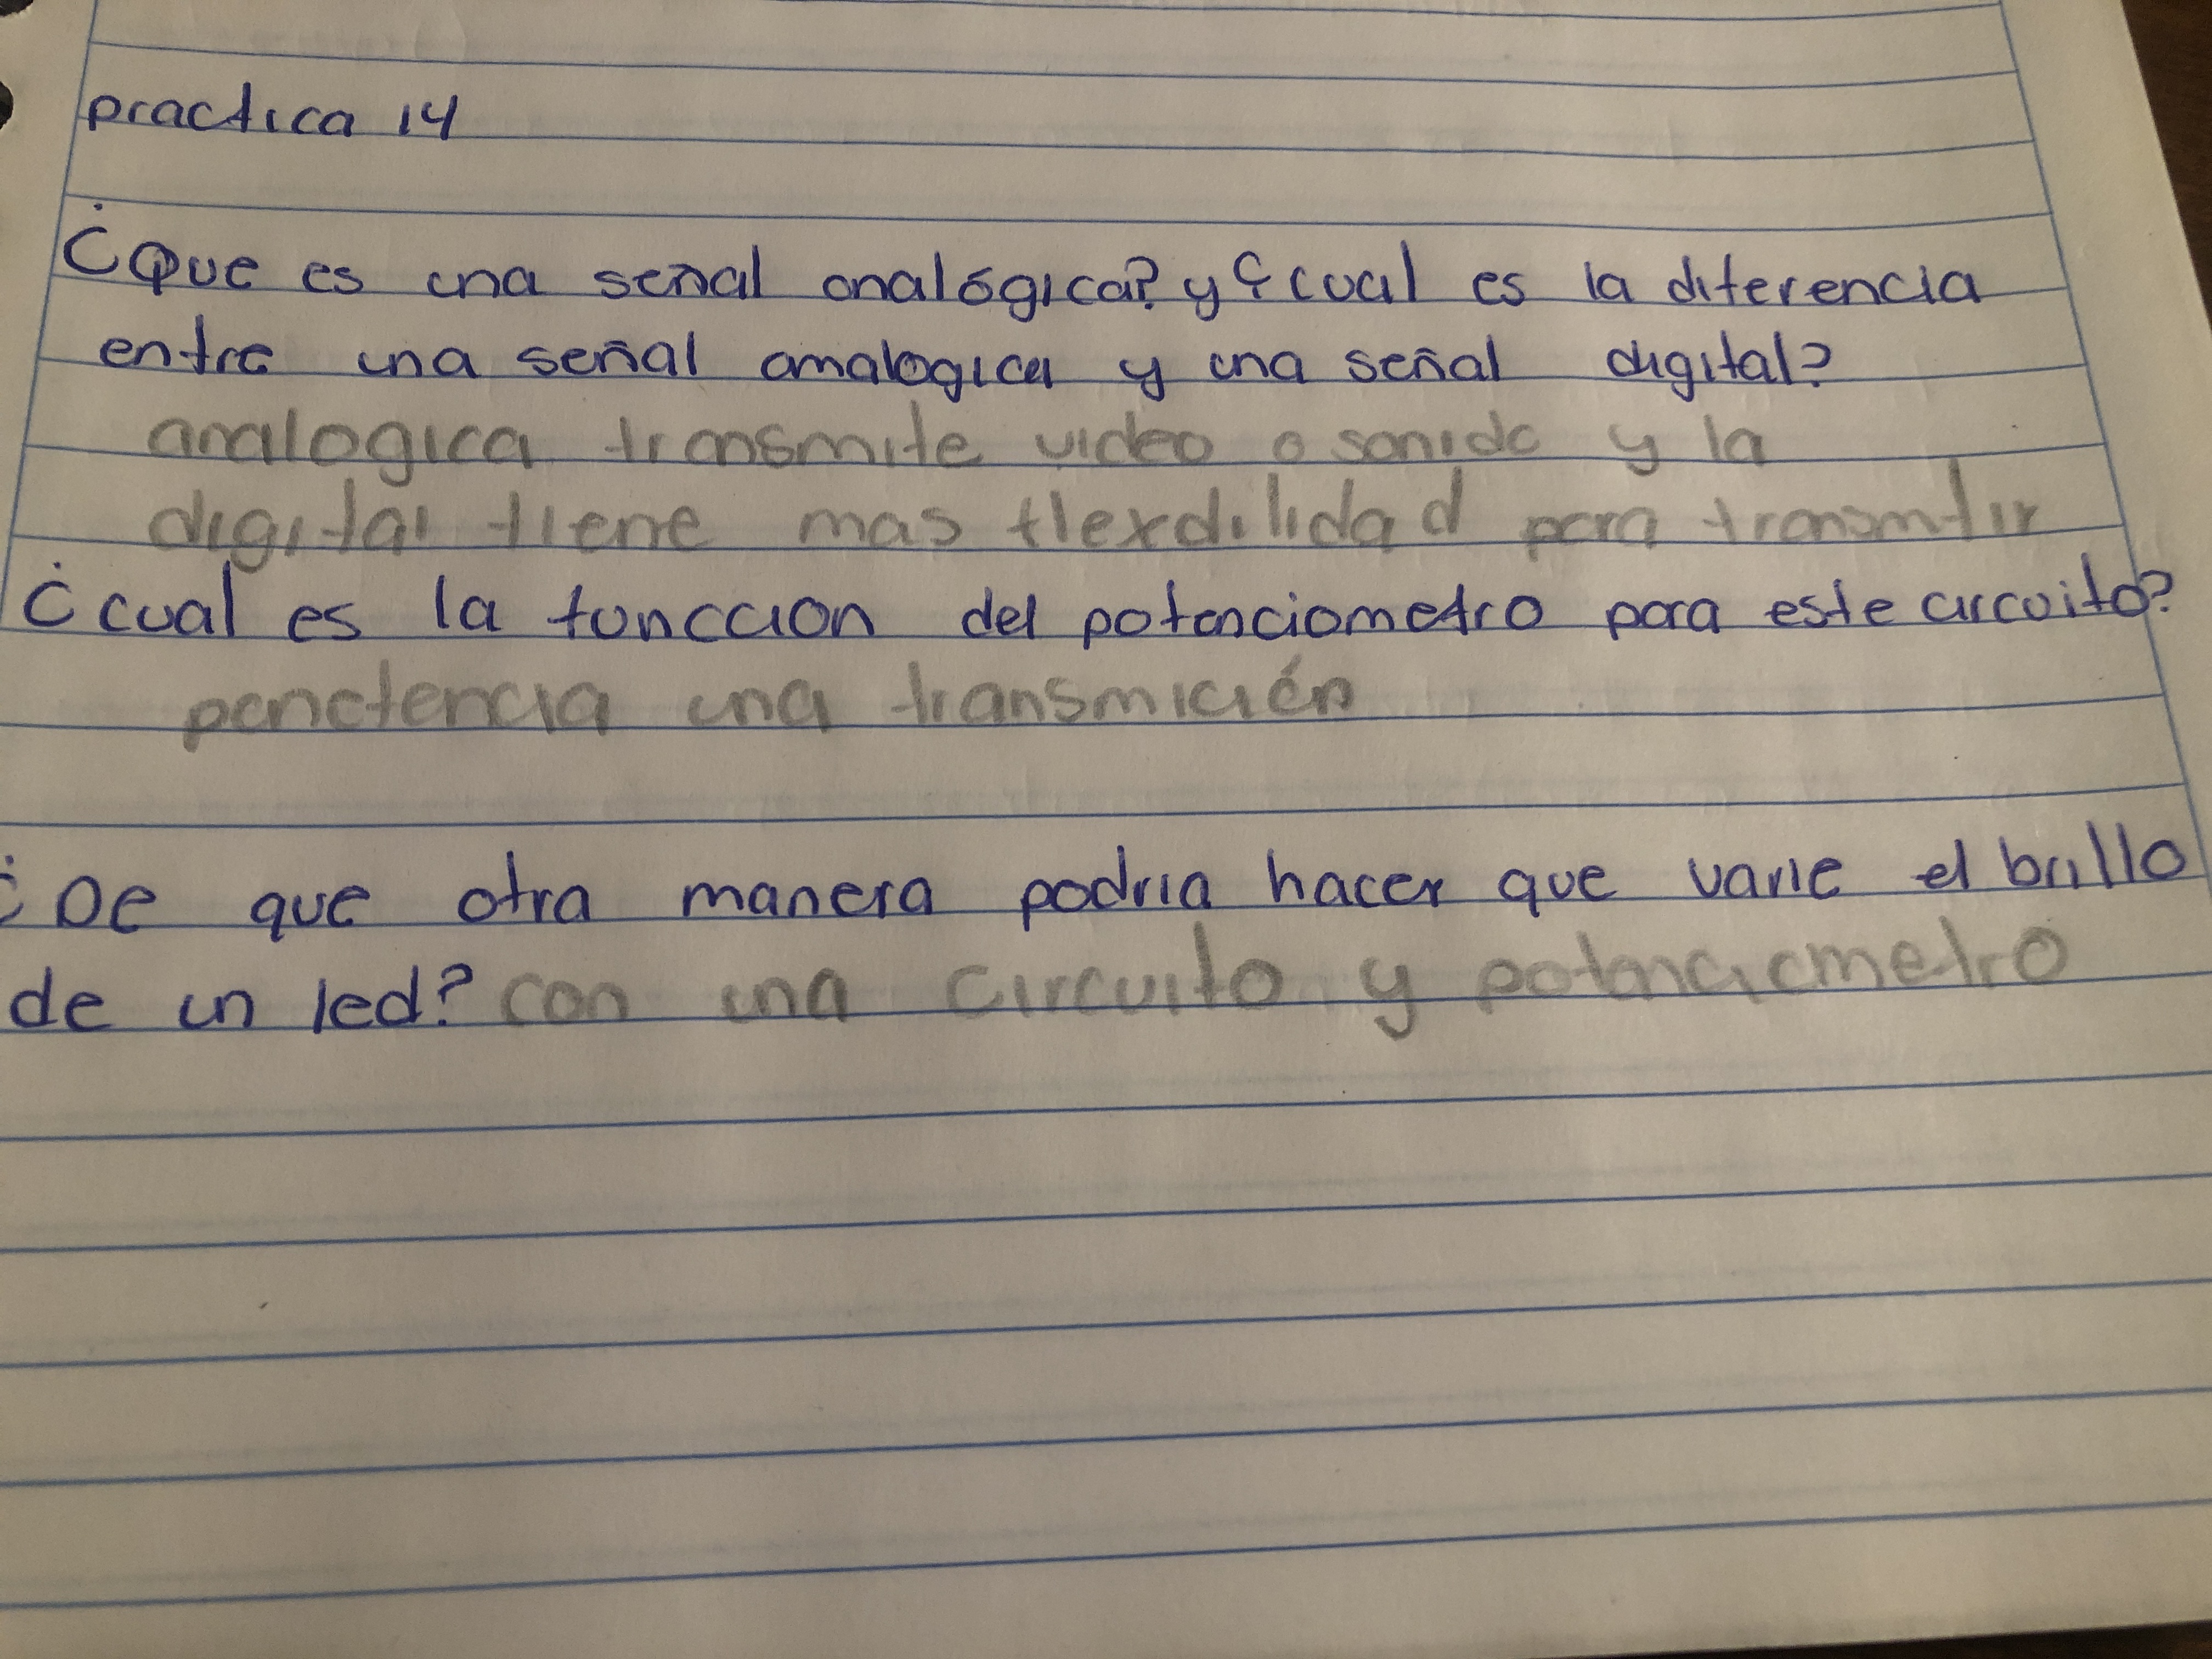 practica 14
¿Que es una señal analógica? y ¿cual es la diferencia
entre una señal amalogica y una señal digital?
analogica transmite video o sonido y la
digital tiene mas flexdilidad para transmtir
¿cual es la funccion del potenciometro para este circuito?
una transmición
¿De que otra manera podria hacer que varie el brillo
de un led? con una circuito y potenciometro